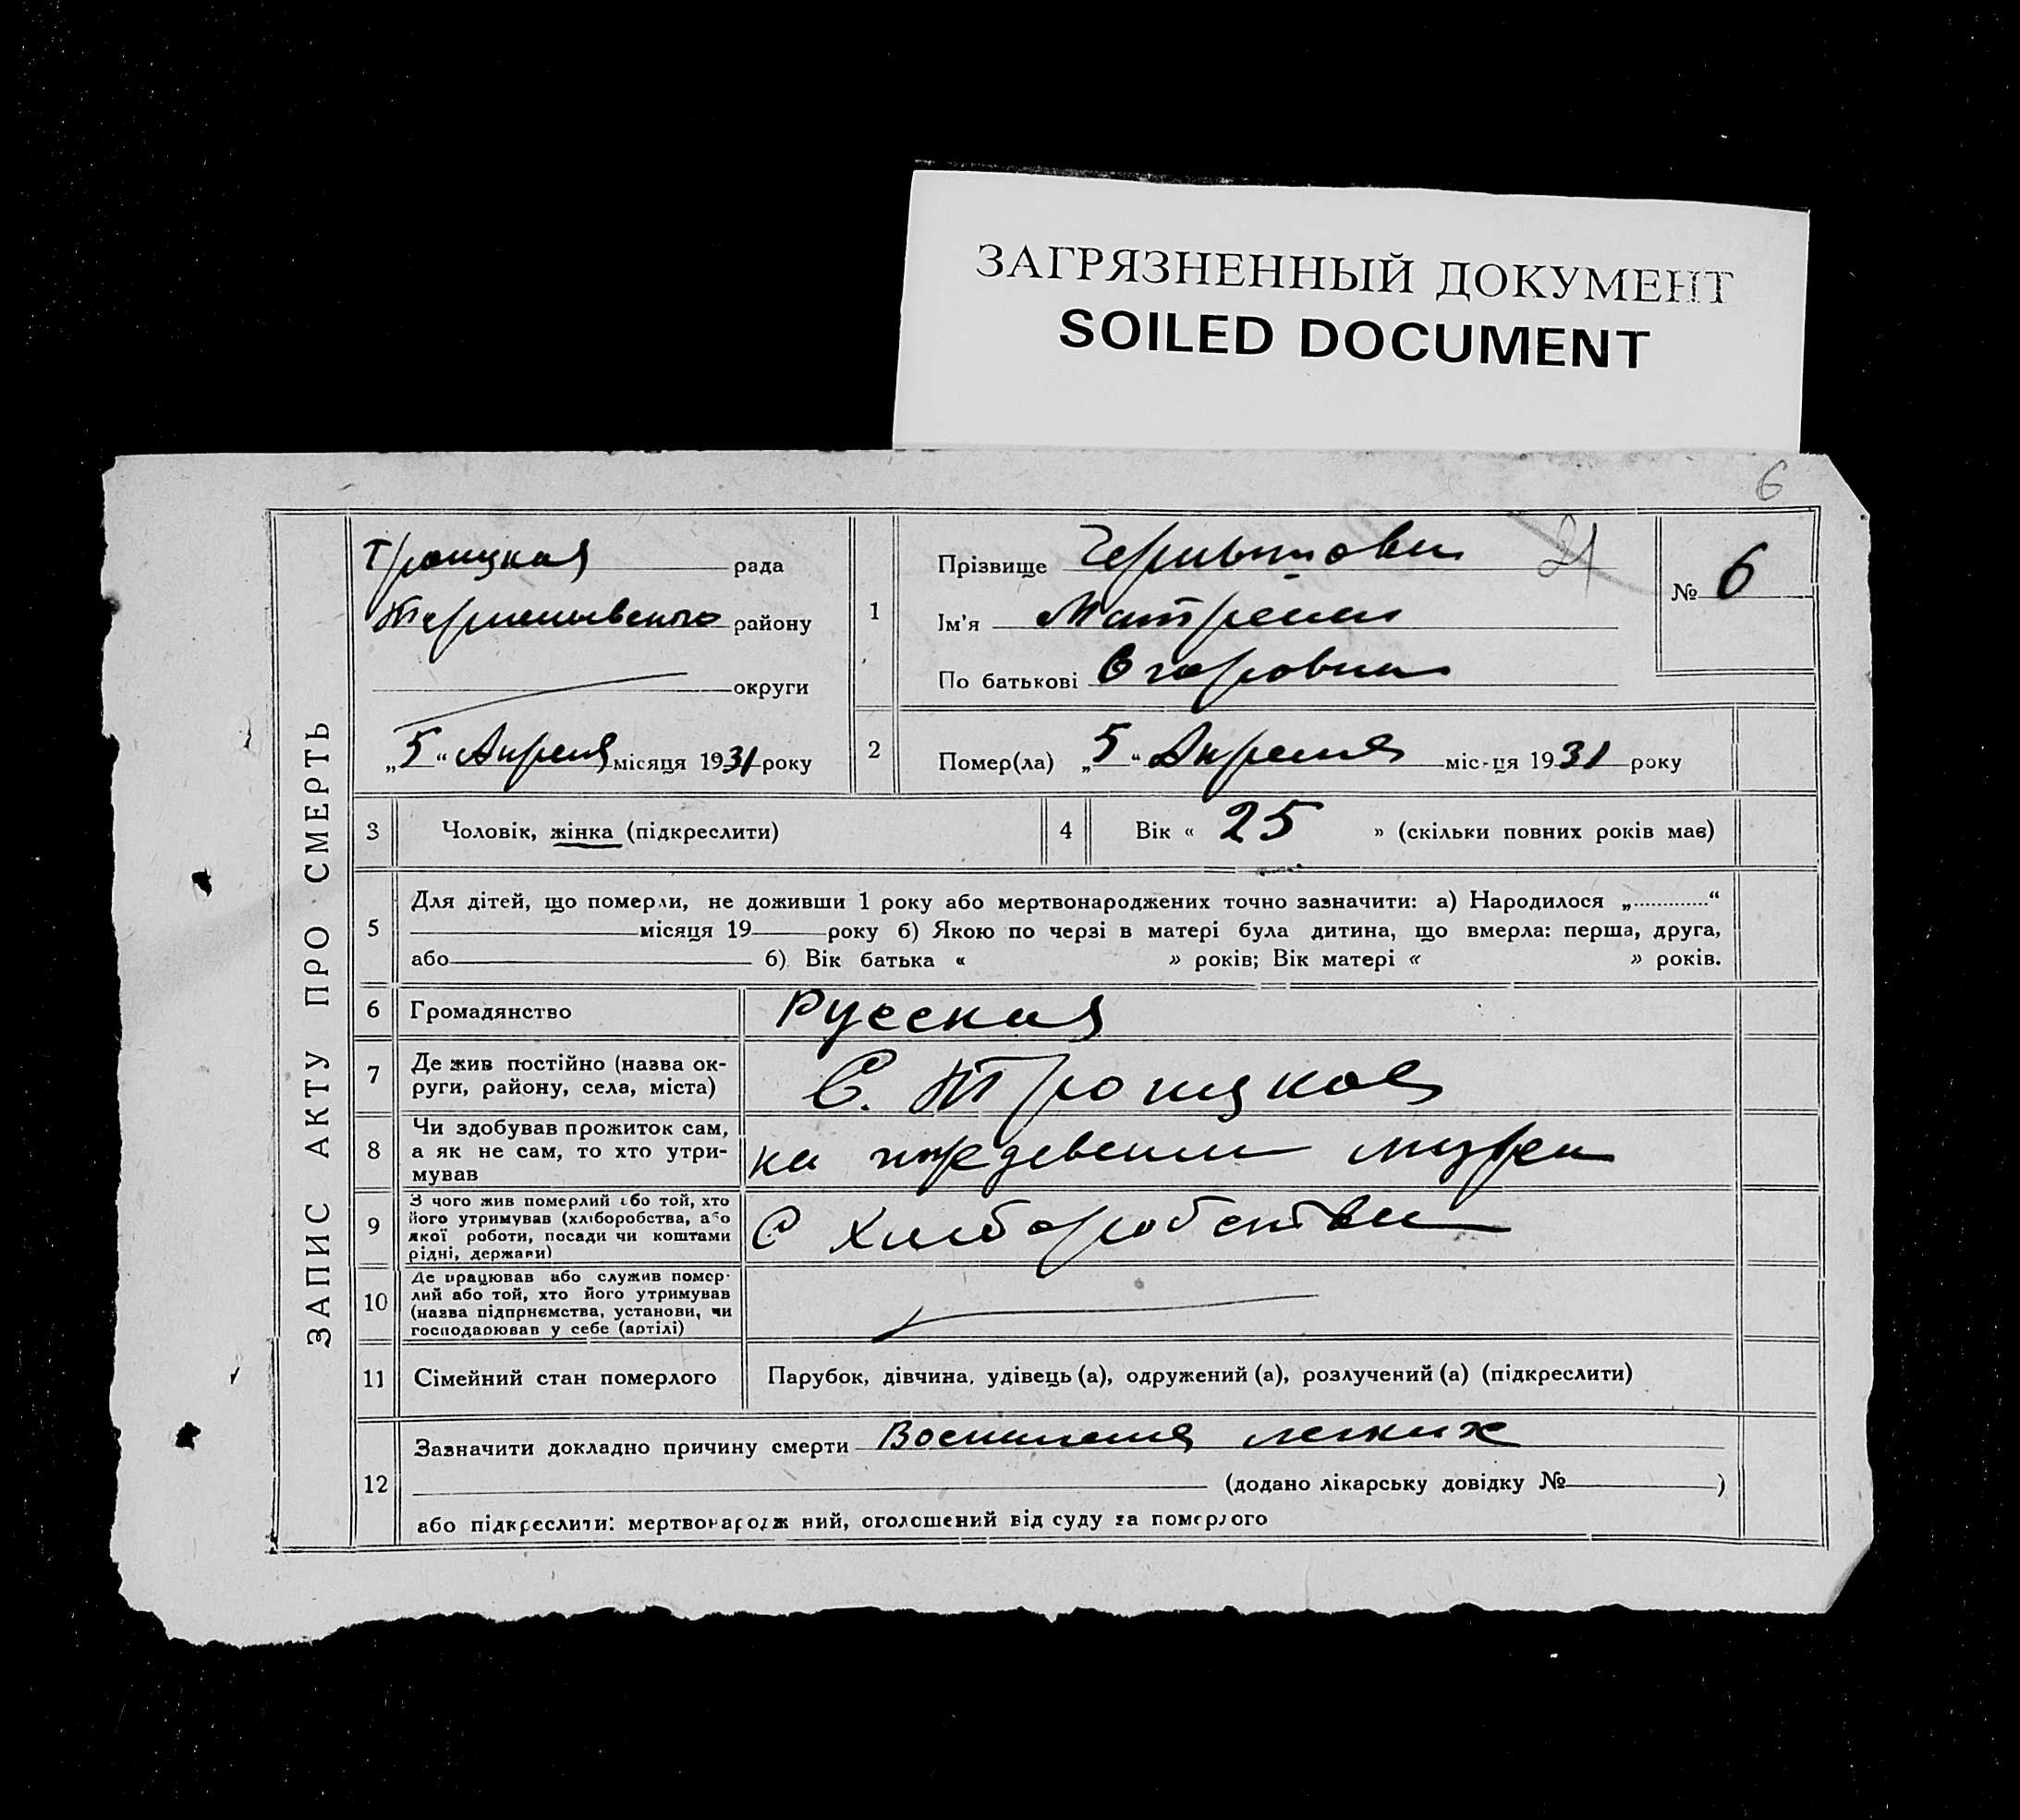 ЗАГРЯЗНЕННЫЙ ДОКУМЕНТ
SOILED DOCUMENT
6
ЗАПИС АКТУ ПРО СМЕРТЬ
Троицкая рада
району
округи
„5“ Апреля місяця 1931 року
1
Прізвище
21
Ім'я Матрена
По батькові Егоровна
№ 6
2
Помер(ла) „5“ Апреля міс-ця 1931 року
3
Чоловік, жінка (підкреслити)
4
Вік « 25 » (скільки повних років має)
5
Для дітей, що померли, не доживши 1 року або мертвонароджених точно зазначити: а) Народилося „ “
місяця 19 року б) Якою по черзі в матері була дитина, що вмерла: перша, друга,
або б) Вік батька « » років; Вік матері « » років.
6
Громадянство
Русская
7
Де жив постійно (назва ок-
руги, району, села, міста)
С. Троицкое
8
Чи здобував прожиток сам,
а як не сам, то хто утри-
мував
на иждевении мужа
9
З чого жив померлий або той, хто
його утримував (хліборобства, або
якої роботи, посади чи коштами
рідні, держави)
С Хлеборобства
10
Де працював або служив помер-
лий або той, хто його утримував
(назва підприємства, установи, чи
господарював у себе (артілі)
11
Сімейний стан померлого
Парубок, дівчина, удівець (а), одружений (а), розлучений (а) (підкреслити)
12
Зазначити докладно причину смерти Воспаления легких
(додано лікарську довідку № )
або підкреслити: мертвонародж ний, оголошений від суду за померлого